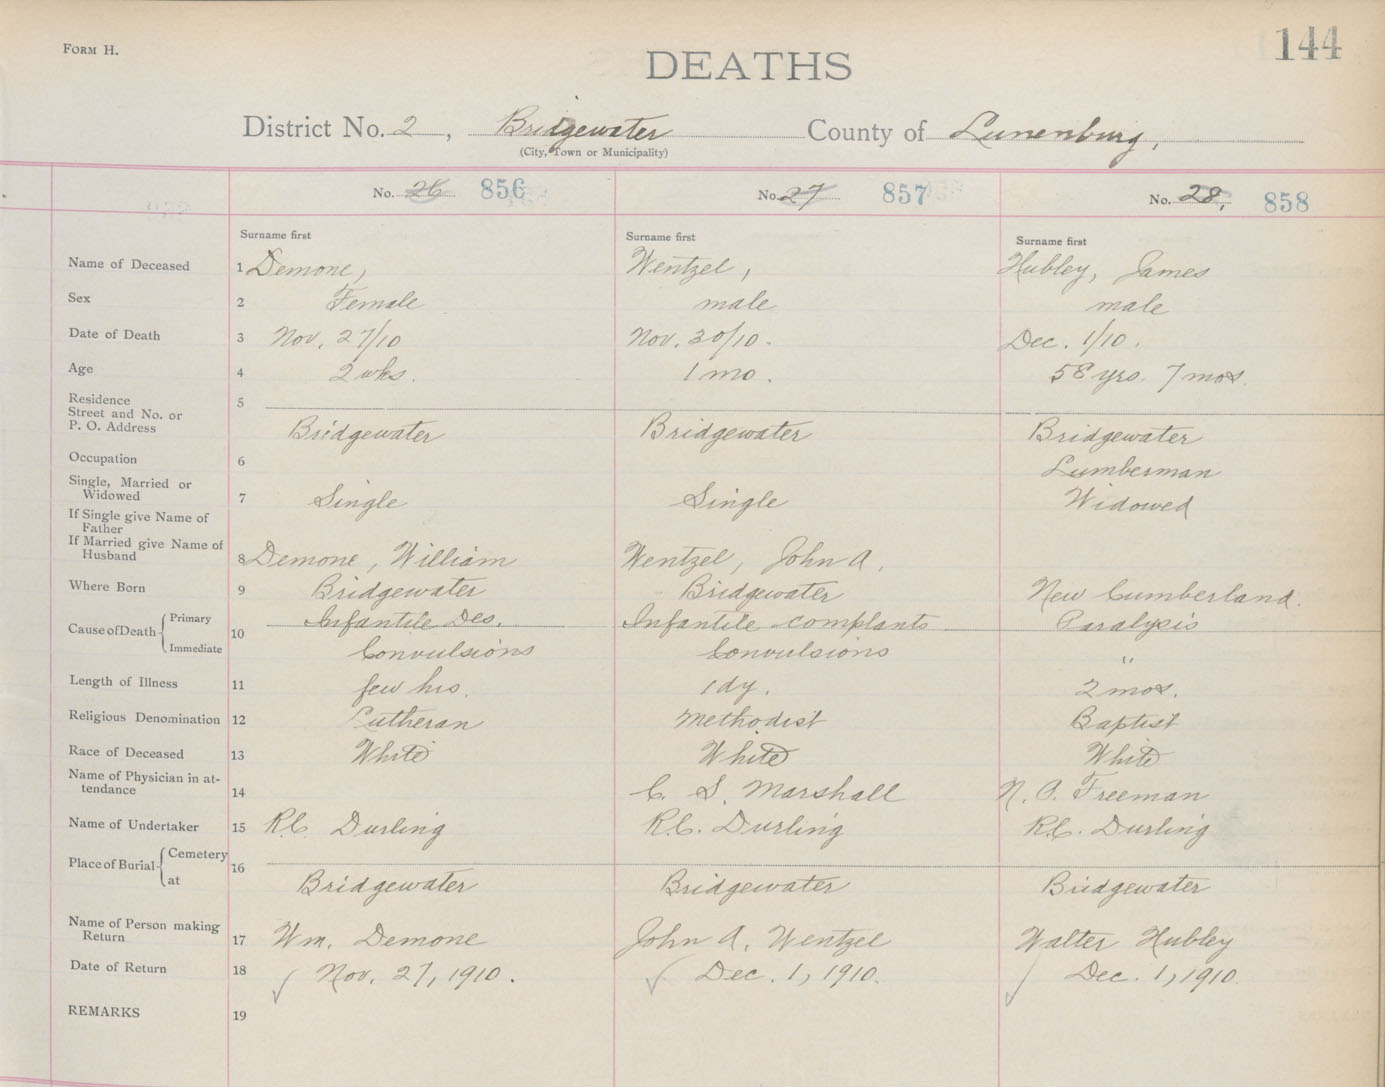 FORM H.
144
DEATHS
District No. 2, Bridgewater County of Lunenburg,
(City, Town or Municipality)
No. 26 856 No. 27 857 No. 28, 858
Surname first Surname first Surname first
Name of Deceased 1 Demone, Wentzel, Hubley, James
Sex 2 Female male male
Date of Death 3 Nov. 27/10 Nov. 30/10. Dec. 1/10.
Age 4 2 wks. 1 mo. 58 yrs. 7 mos.
Residence 5
Street and No. or
P. O. Address Bridgewater Bridgewater Bridgewater
Occupation 6 Lumberman
Single, Married or
Widowed 7 Single Single Widowed
If Single give Name of
Father
If Married give Name of
Husband 8 Demone, William Wentzel, John A.
Where Born 9 Bridgewater Bridgewater New Cumberland.
Cause of Death Primary 10 Infantile Des. Infantile complants Paralysis
Immediate Convulsions Convulsions "
Length of Illness 11 few hrs. 1 dy. 2 mos.
Religious Denomination 12 Lutheran Methodist Baptist
Race of Deceased 13 White White White
Name of Physician in at-
tendance 14 C. S. Marshall N. P. Freeman
Name of Undertaker 15 R.C. Durling R.C. Durling R.C. Durling
Place of Burial Cemetery 16
at Bridgewater Bridgewater Bridgewater
Name of Person making
Return 17 Wm. Demone John A. Wentzel Walter Hubley
Date of Return 18 Nov. 27, 1910. Dec. 1, 1910. Dec. 1, 1910.
REMARKS 19